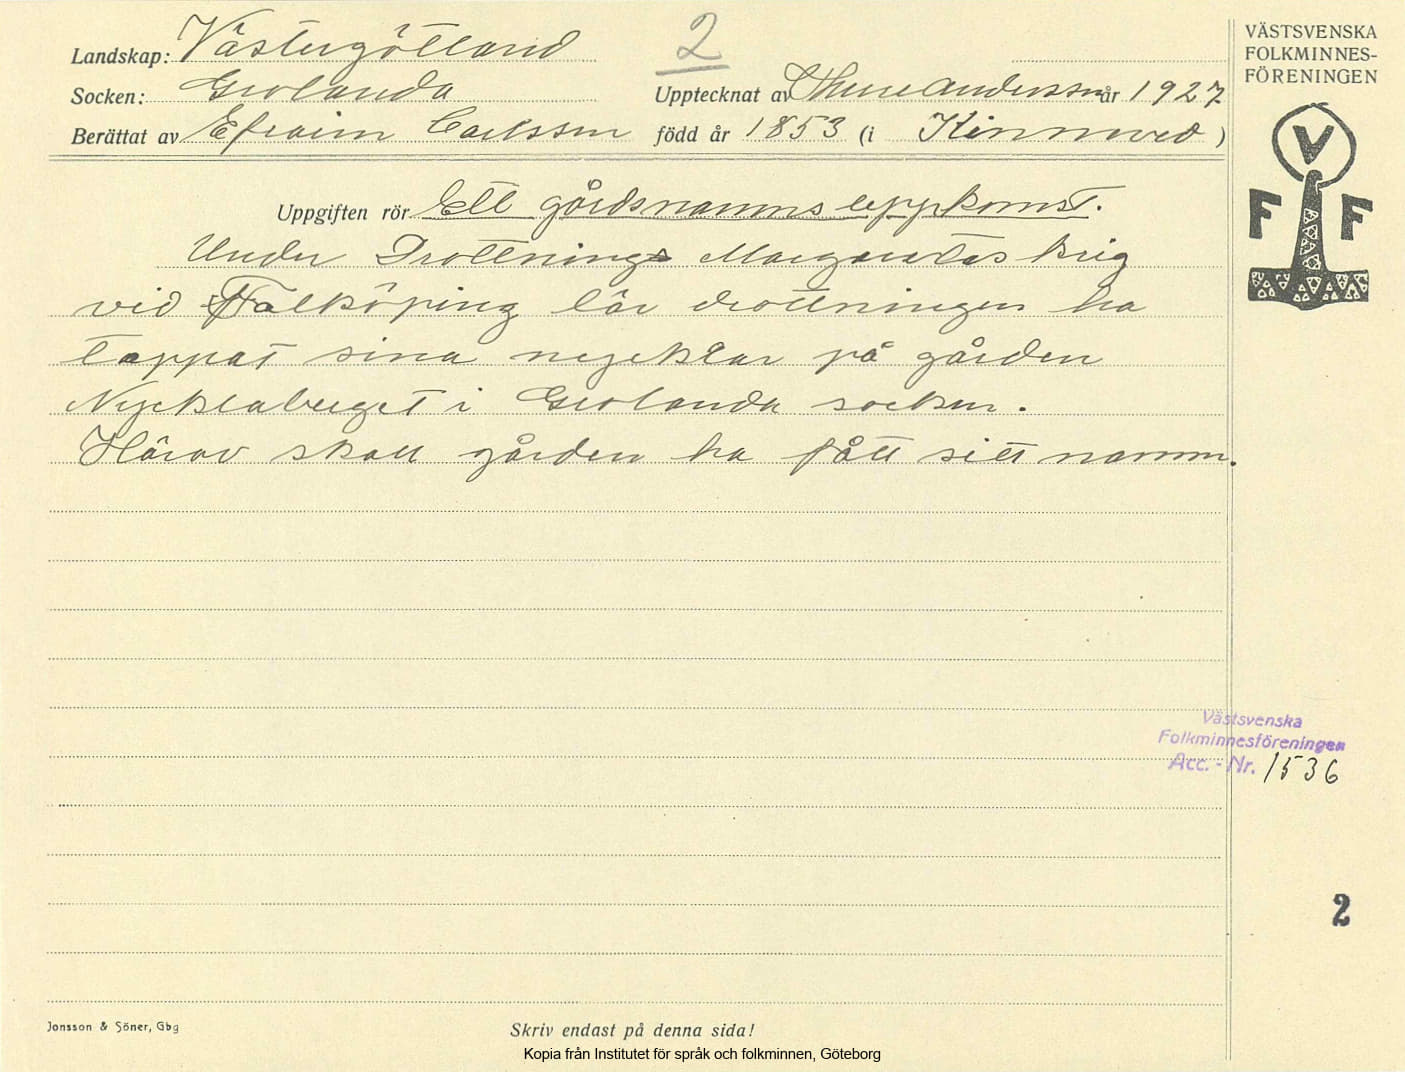 Landskap: Västergötland
Socken: Grolanda
Berättat av Efraim Carlsson
2
Upptecknat av Thure Andersson år 1927
född år 1853 (i Kinneved)
VÄSTSVENSKA
FOLKMINNES-
FÖRENINGEN
V
F F
Uppgiften rör Ett gårdsnamns uppkomst.
Under Drottning Margaretas krig
vid Falköping lär drottningen ha
tappat sina nycklar på gården
Nycklaberget i Grolanda socken.
Härav skall gården ha fått sitt namn.
Västsvenska
Folkminnesföreningen
Acc. - Nr. 1536
2
Jonsson & Söner, Gbg
Skriv endast på denna sida!
Kopia från Institutet för språk och folkminnen, Göteborg